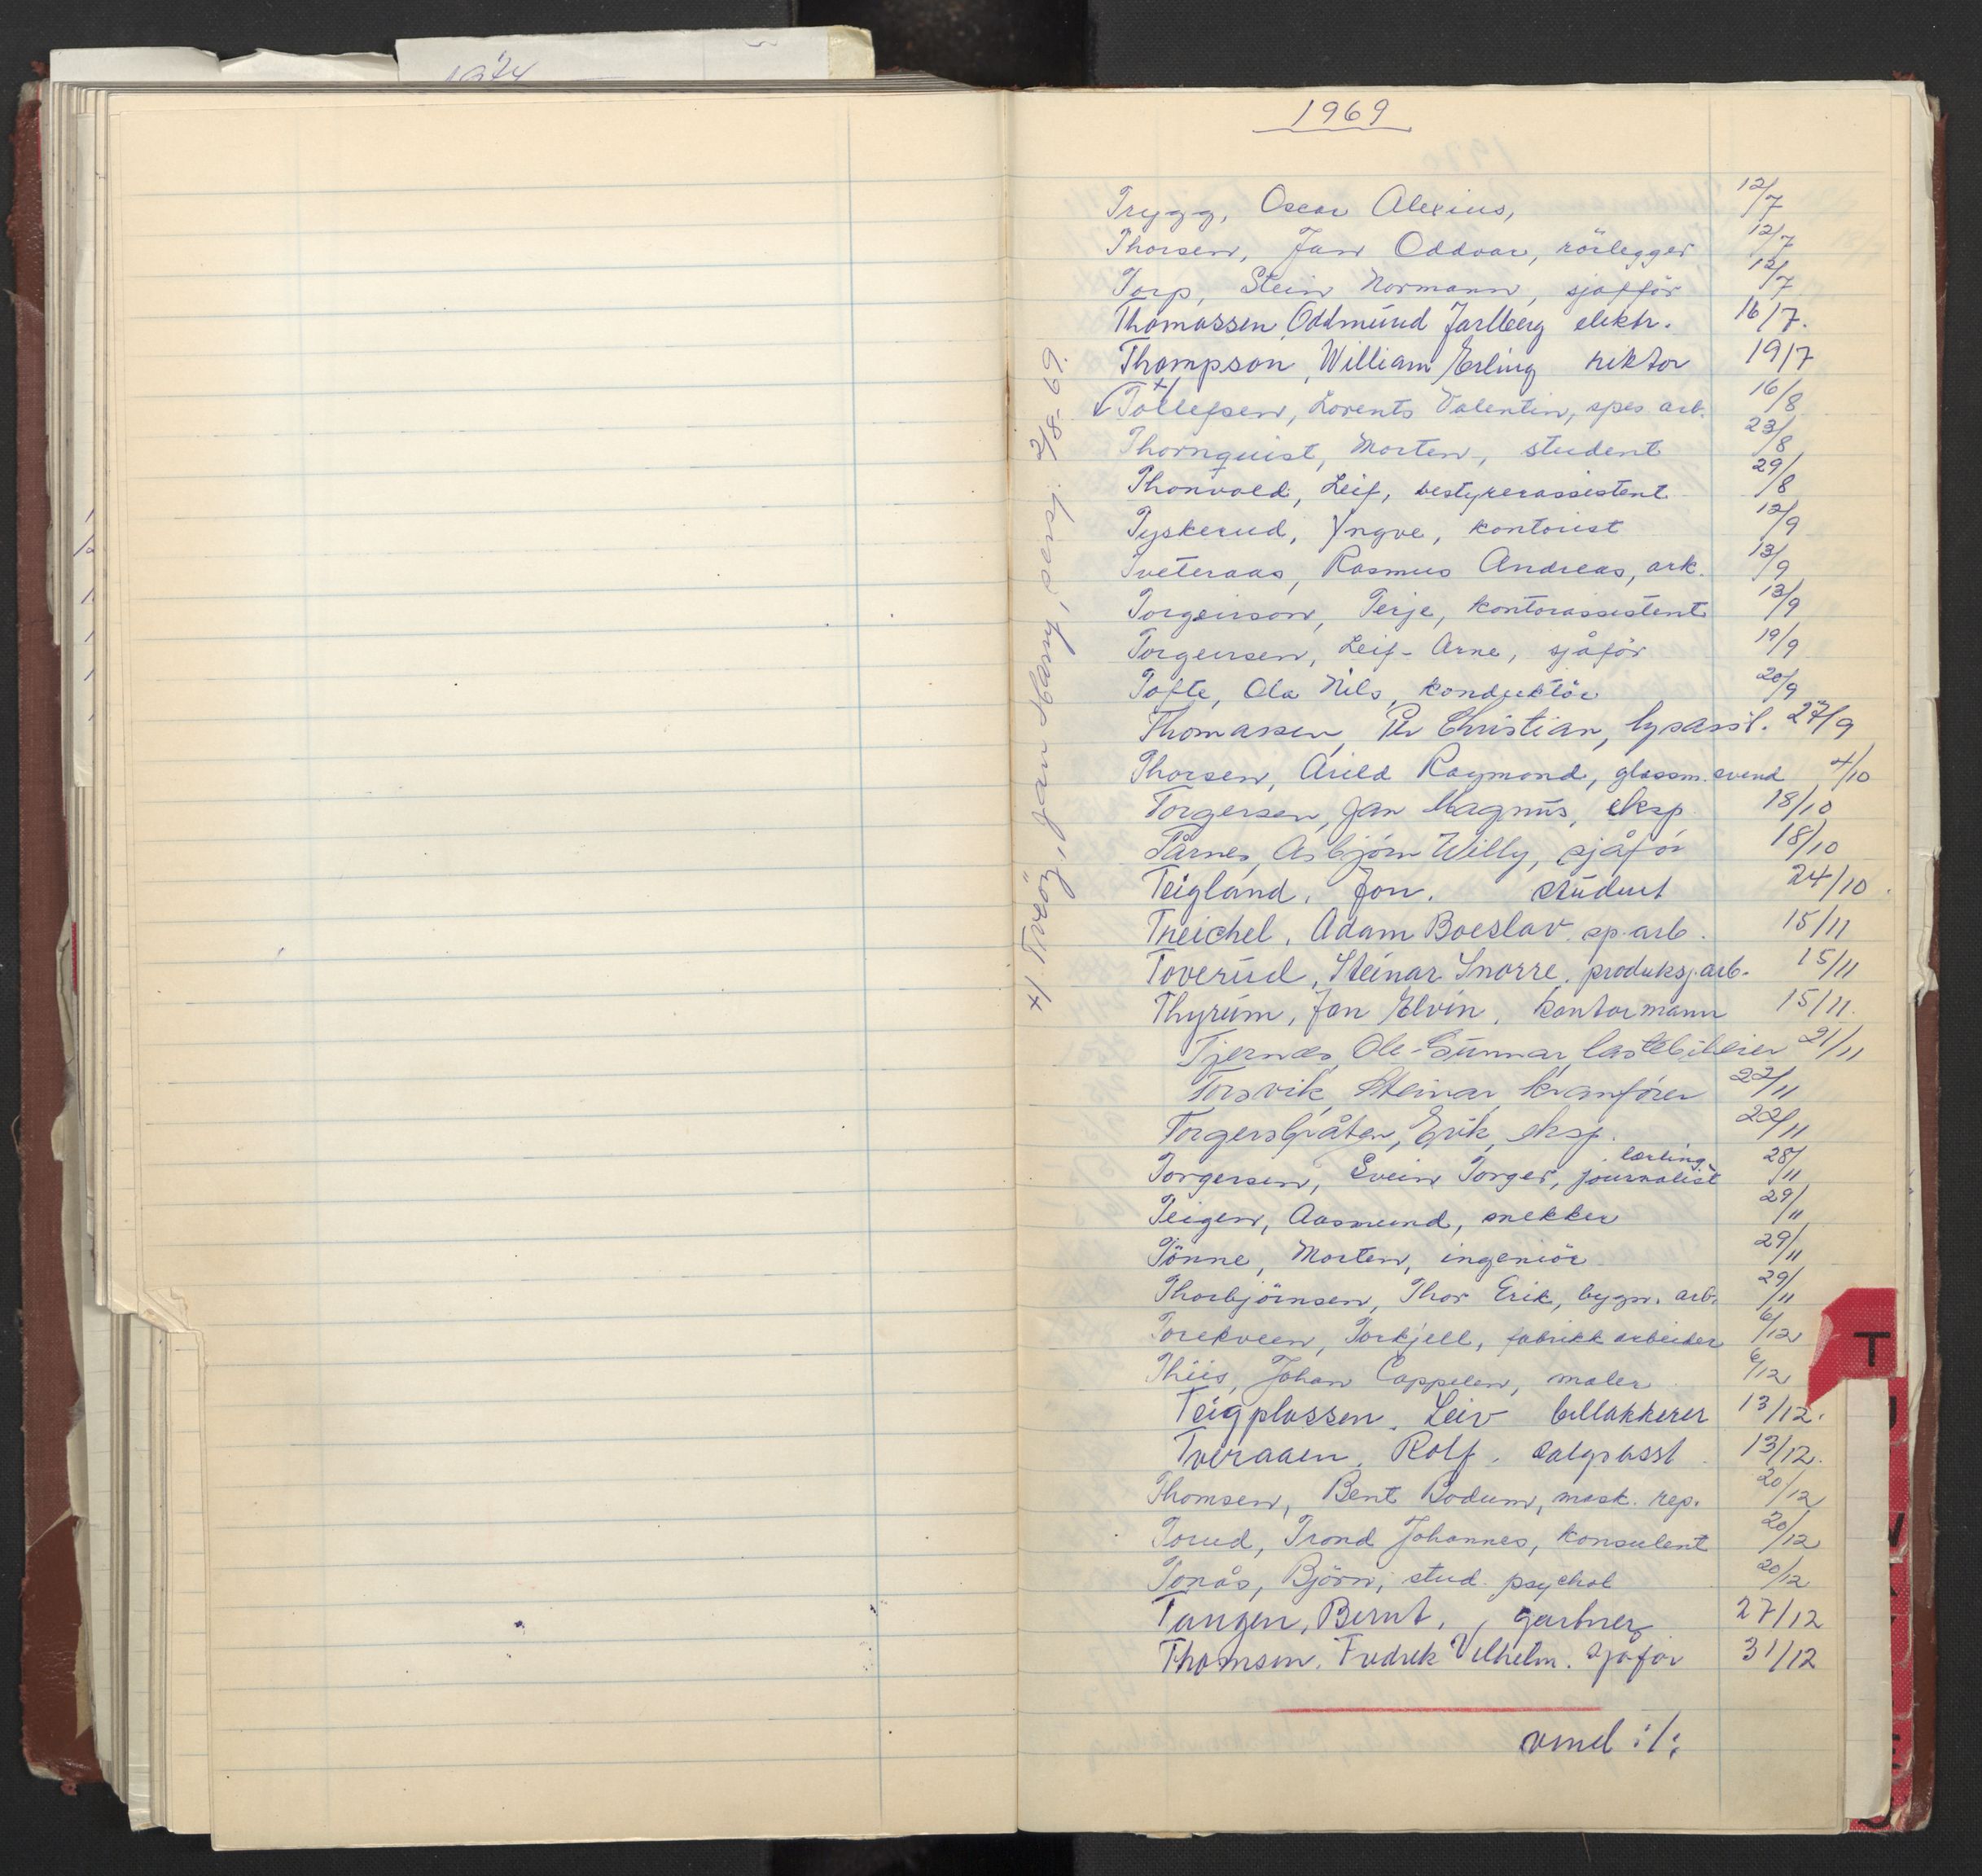 1969
Trygg, Oscar Alexius, 12/7
Thorsen, Jan Oddvar, rörlegger 12/7
Torp, Stein Normann, sjåfför 12/7
Thomassen, Oddmund Jarlberg elektr. 16/7.
Thompson, William Erling rektor 19/7
+/
√ Tollefsen, Lorents Valentin, spes. arb. 16/8
Thornquist, Morten, student 23/8
Thorvald, Leif, bestyrerassistent 29/8
Tyskerud, Yngve, kontorist 12/9
Tveteraas, Rasmus Andreas, ark. 13/9
Torgeirson, Terje, kontorassistent 13/9
Torgersen, Leif-Arne, sjåför 19/9
Tofte, Ola Nils, konduktör 20/9
Thomassen, Per Christian, lysasst. 27/9
Thorsen, Arild Raymond, glassm. svend 4/10
Torgersen, Jan Magnus, eksp. 18/10
Tårnes, Asbjörn Willy, sjåför 18/10
Teigland, Jon. student 24/10.
Treichel, Adam Boeslav. sp.arb. 15/11
Toverud, Steinar Snorre, produksj.arb. 15/11
Thyrum, Jan Elvin, kontormann 15/11.
Tjernæs, Ole-Gunnar, lastebileier 21/11
Torsvik, Steinar, kranförer 22/11
Torgersbråten, Erik, eksp. 22/11
lærling
Torgersen, Svein Torger, journalist 28/11
Teigen, Aasmund, snekker 29/11
Tönne, Morten, ingeniör 29/11
Thorbjörnsen, Thor Erik, bygn. arb. 29/11
Torekveen, Torkjell, fabrikkarbeider 6/12
Thiis, Johan Cappelen, maler 6/12
Teigplassen, Leiv billakkerer 13/12.
Tveraaen, Rolf, salgsasst. 13/12.
Thomsen, Bent Bodum, mask. rep. 20/12
Torud, Trond Johannes, konsulent 20/12
Tonås, Björn, stud. psychol 20/12
Tangen, Bernt, gartner 27/12
Thomsen, Fredrik Vilhelm. sjåför 31/12
vend ://:
+/ Tveöy, Jan Harry, sersj. 2/8-69.
1974
T